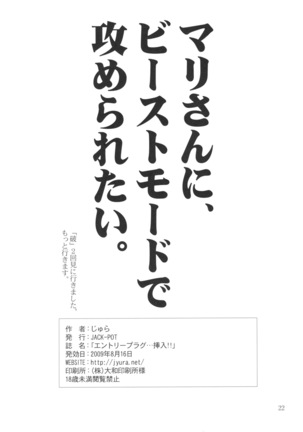 マリさんに、
ビーストモードで
攻められたい。
「破」2回見に行きました。
もっと行きます。
作 者：じゅら
発 行：JACK-POT
誌 名：「エントリープラグ…挿入!!」
発効日：2009年8月16日
WEBSITE：http://jyura.net/
印刷所：(株)大和印刷所様
18歳未満閲覧禁止
22